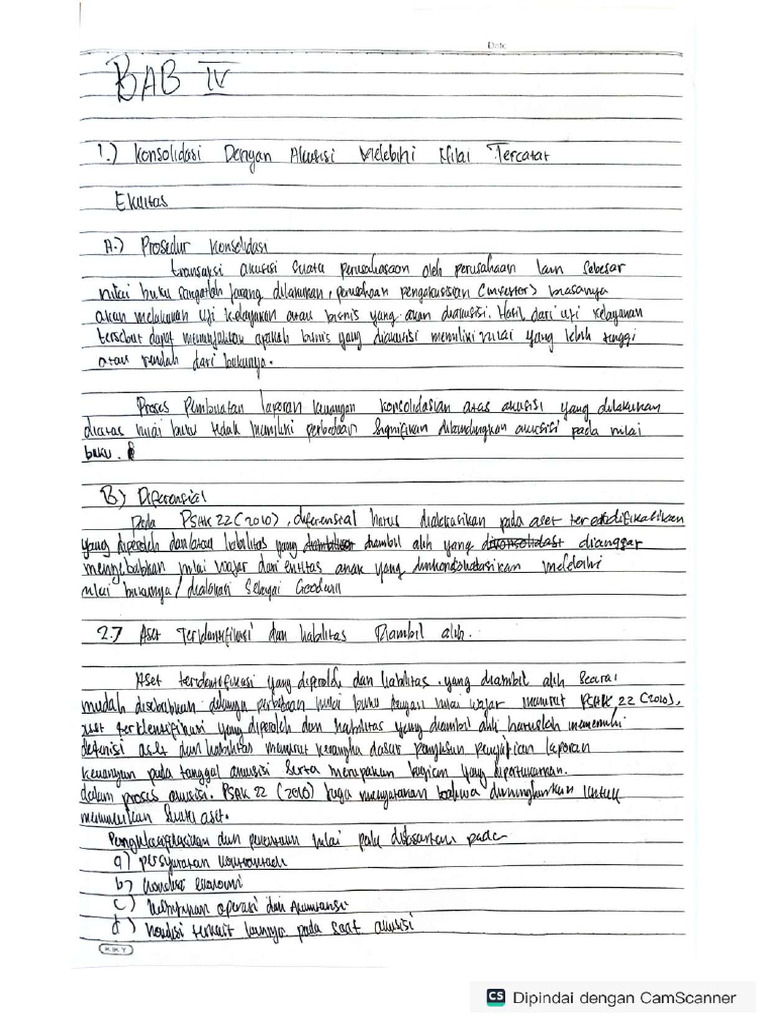 Date
BAB IV
1.) Konsolidasi Dengan Akuisisi Melebihi Nilai Tercatat
Ekuitas
A.) Prosedur Konsolidasi
transaksi akuisisi suatu perusahasaan oleh perusahaan lain sebesar
nilai buku sangatlah jarang dilakukan, perusahaan pengakuisisian (investor) biasanya
akan melakukan uji kelayakan atau bisnis yang akan diakuisisi. Hasil dari uji kelayakan
tersebut dapat menunjukkan apakah bisnis yang diakuisisi memiliki nilai yang lebih tinggi
atau rendah dari bukunya.
Proses Pembuatan laporan keuangan konsolidasian atas akuisisi yang dilakukan
diatas nilai buku tidak memiliki perbedaan signifikan dibandingkan akuisisi pada nilai
buku.
B) Diferensial
Pada PSAK 22 (2010), diferensial harus dialokasikan pada aset teridentifikasikan
yang diperoleh dan/atau liabilitas yang diambil alih yang dianggap
mengebabkan nilai wajar dari entitas anak yang dikonsolidasikan melebihi
nilai bukunya / dialokasi Sebagai Goodwill
2.7 Aset Teridentifikasi dan liabilitas Diambil alih.
Aset teridentifikasi yang diperoleh dan liabilitas yang diambil alih secara
mudah disebabkan adanya perbedaan nilai buku dengan nilai wajar menurut PSAK 22 (2010),
aset teridentifikasi yang diperoleh dan liabilitas yang diambil alih haruslah memenuhi
definisi aset dan liabilitas menurut kerangka dasar penyajian laporan
keuangan pada tanggal akuisisi serta merupakan bagian yang dipertukarkan.
dalam proses akuisisi. PSAK 22 (2010) juga menyatakan bahwa dimungkinkan untuk
suatu aset.
Pengklasifikasian dan penentuan nilai pada
a) persyaratan kontraktual
b) kondisi ekonomi
c) kebijakan operasi dan Akuntansi
d) kondisi terkait lainnya pada saat akuisisi
KIKY
CS Dipindai dengan CamScanner